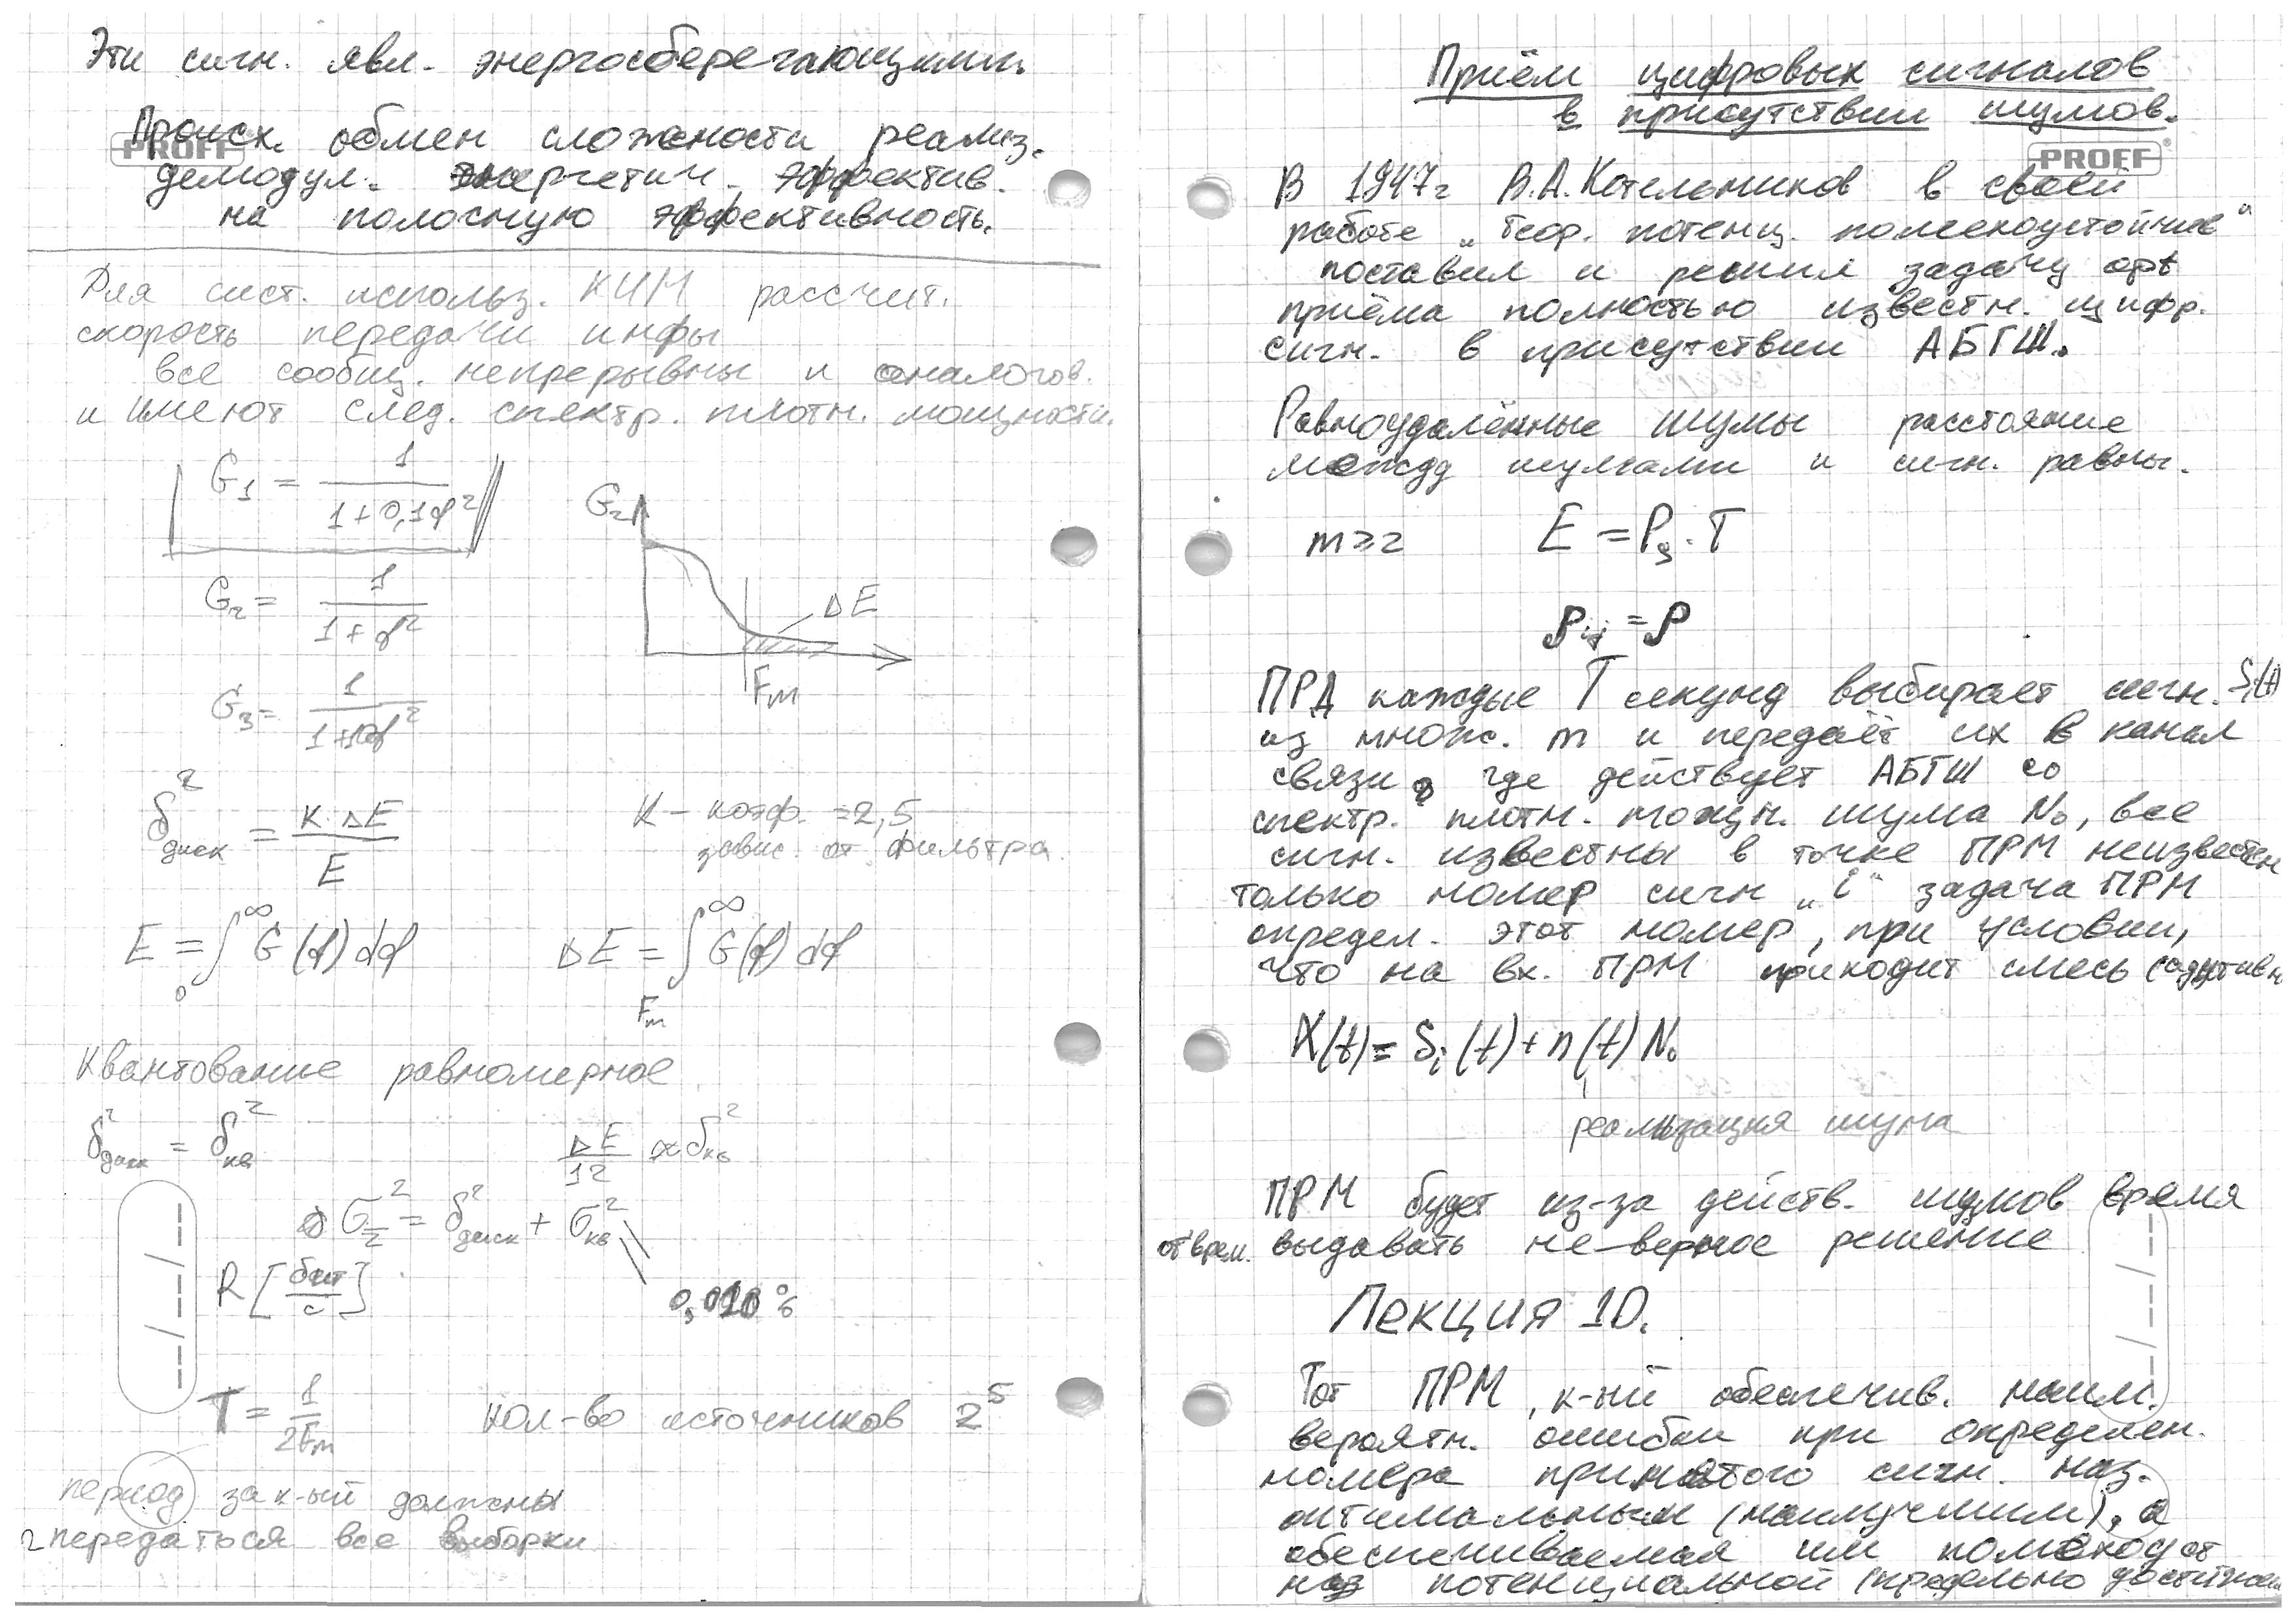 Эти сигн. явл. энергосберегающими.
Происх. обмен сложности реализ.
PROFF
демодул. энергетич. эффектив.
на полосную эффективность.
Для сист. использ. КИМ рассчит.
скорость передачи инфы
все сообщ. непрерывны и аналогов.
и имеют след. спектр. плотн. мощности.
G₁ = 1/(1+0,1f²)
G₂
ΔE
Fm
G₂ = 1/(1+f²)
G₃ = 1/(1+10f²)
δ²диск = K·ΔE/E
K – коэф. =2,5
завис. от фильтра.
E = ∫₀^∞ G(f) df
ΔE = ∫_Fm^∞ G(f) df
Квантование равномерное
δ²диск = δ²кв
ΔE/12 ∝ δ²кв
σ²Σ = δ²диск + σ²кв
R [бит/с]
0,010 %
T = 1/2Fm
кол-во источников 2⁵
период за к-ый должны
передаться все выборки
Приём цифровых сигналов
в присутствии шумов.
PROFF®
В 1947г В.А.Котельников в своей
работе „Теор. потенц. помехоустойчив"
поставил и решил задачу opt
приёма полностью известн. цифр.
сигн. в присутствии АБГШ.
Равноудалённые шумы расстояние
между шумами и сигн. равны.
m≥2
E = Ps·T
ρij = ρ
ПРД каждые T секунд выбирает сигн. Si(t)
из множ. m и передаёт их в канал
связи, где действует АБГШ со
спектр. плотн. мощн. шума N₀, все
сигн. известны в точке ПРМ неизвестен
только номер сигн „i" задача ПРМ
определ. этот номер, при условии,
что на вх. ПРМ приходит смесь (аддитивн
X(t) = Si(t) + n(t) N₀
реализация шума
ПРМ будет из-за действ. шумов время
от врем. выдавать не верное решение
Лекция 10.
Тот ПРМ, к-ый обеспечив. наим.
вероятн. ошибки при определен.
номера принятого сигн. наз.
оптимальным (наилучшим), а
обеспечиваемая им помехоуст
наз потенциальной (предельно достижим